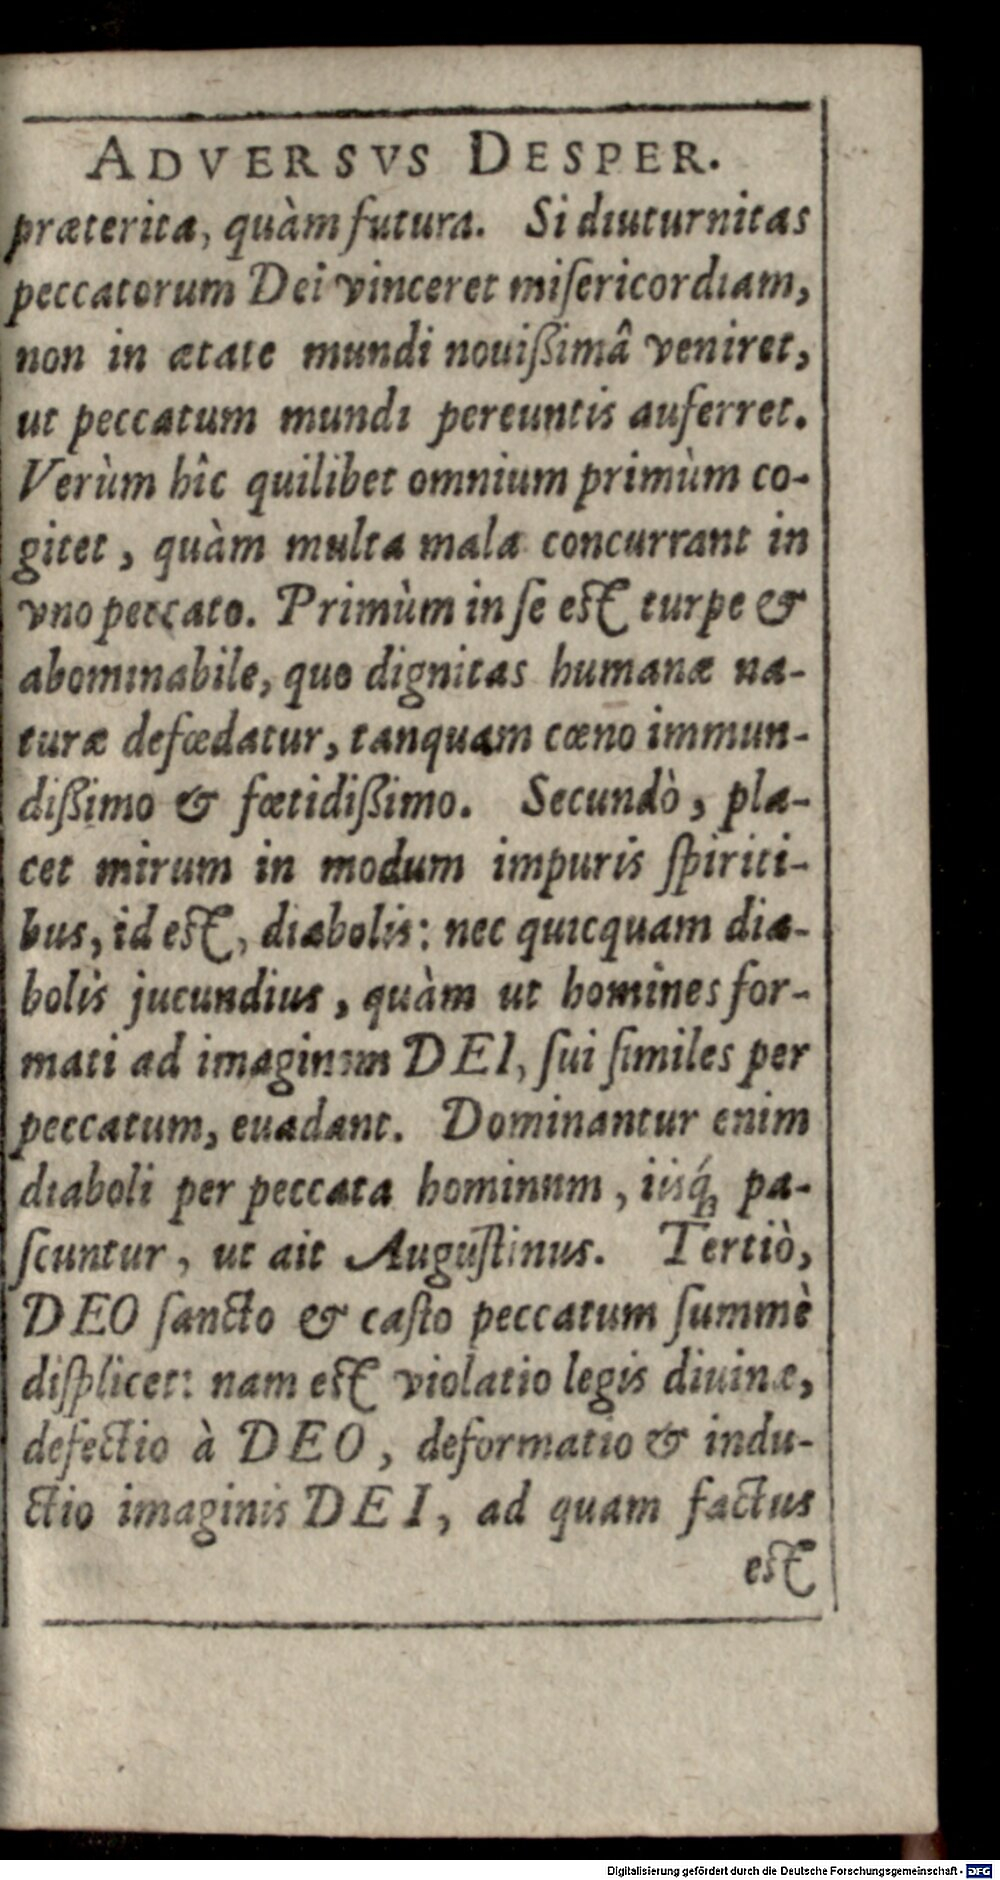 ADVERSVS DESPER.
præterita, quàm futura. Si diuturnitas
peccatorum Dei vinceret miſericordiam,
non in ætate mundi nouißimâ veniret,
ut peccatum mundi pereuntis auferret.
Verùm hîc quilibet omnium primùm co-
gitet, quàm multa mala concurrant in
vno peccato. Primùm in ſe est turpe &
abominabile, quo dignitas humanæ na-
turæ defœdatur, tanquam cœno immun-
dißimo & fœtidißimo. Secundò, pla-
cet mirum in modum impuris ſpiriti-
bus, id est, diabolis: nec quicquam dia-
bolis jucundius, quàm ut homines for-
mati ad imaginem DEI, ſui ſimiles per
peccatum, euadant. Dominantur enim
diaboli per peccata hominum, iisq́; pa-
ſcuntur, ut ait Auguſtinus. Tertiò,
DEO ſancto & caſto peccatum ſummè
diſplicet: nam est violatio legis diuinæ,
defectio à DEO, deformatio & indu-
ctio imaginis DEI, ad quam factus
est
Digitalisierung gefördert durch die Deutsche Forschungsgemeinschaft - DFG